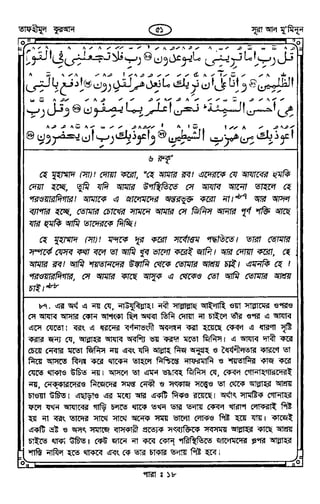 তাফহীমুল কুরআন
৫১
সূরা আল মু'মিনূন
قُلْ رَّبِّ إِمَّا تُرِيَنِّي مَا يُوعَدُونَ ۞ رَبِّ فَلَا تَجْعَلْنِي فِي الْقَوْمِ
الظّٰلِمِينَ ۞ وَإِنَّا عَلٰٓى أَنْ نُّرِيَكَ مَا نَعِدُهُمْ لَقٰدِرُونَ ۞ اِدْفَعْ بِالَّتِي
هِيَ أَحْسَنُ السَّيِّئَةَ ۚ نَحْنُ أَعْلَمُ بِمَا يَصِفُونَ ۞ وَقُلْ رَّبِّ
أَعُوذُ بِكَ مِنْ هَمَزٰتِ الشَّيٰطِينِ ۞ وَأَعُوذُ بِكَ رَبِّ أَنْ يَّحْضُرُونِ ۞
৬ রুকূ'
হে মুহাম্মাদ (সা)! দোয়া করো, "হে আমার রব! এদেরকে যে আযাবের হুমকি
দেয়া হচ্ছে, তুমি যদি আমার উপস্থিতিতে সে আযাব আনো তাহলে হে
পরওয়ারদিগার! আমাকে এ জালেমদের অন্তরভুক্ত করো না।৮৭ আর আসল
ব্যাপার হচ্ছে, তোমার চোখের সামনে আমার সে জিনিস আনার পূর্ণ শক্তি আছে
যার হুমকি আমি তাদেরকে দিচ্ছি।
হে মুহাম্মাদ (সা)! মন্দকে দূর করো সর্বোত্তম পদ্ধতিতে। তারা তোমার
সম্পর্কে যেসব কথা বলে তা আমি খুব ভালো করেই জানি। আর দোয়া করো, হে
আমার রব! আমি শয়তানদের উস্কানি থেকে তোমার আশ্রয় চাই। এমনকি হে !
পরওয়ারদিগার, সে আমার কাছে আসুক এ থেকেও তো আমি তোমার আশ্রয়
চাই।৮৮
৮৭. এর অর্থ এ নয় যে, নাউযুবিল্লাহ। নবী সাল্লাল্লাহু আলাইহি ওয়া সাল্লামের ওপরও
সে আযাব আসার কোন আশংকা ছিল অথবা তিনি দোয়া না চাইলে তাঁর ওপর এ আযাব
এসে যেতো। বরং এ ধরনের বর্ণনাভংগী অবলম্বন করা হয়েছে কেবল এ ধারণা সৃষ্টি
করার জন্য যে, আল্লাহর আযাব অবশ্যি ভয় করার মতো জিনিস। এর আযাব দাবী করে
চেয়ে নেবার মতো জিনিস নয় এবং যদি আল্লাহ নিজ অনুগ্রহ ও ধৈর্যশীলতার কারণে তা
নিয়ে আসতে বিলম্ব করে থাকেন তাহলে নিশ্চিন্তে নাফরমানি ও শয়তানির কাজ করে
যেতে থাকাও উচিত নয়। আসলে তা এমন ভয়াবহ জিনিস যে, কেবল গোনাহগারদেরই
নয়, নেককারদেরও নিজেদের সমস্ত নেকী ও সৎকাজ সত্ত্বেও তা থেকে আল্লাহর আশ্রয়
চাওয়া উচিত। এছাড়াও এর মধ্যে আর একটি দিকও রয়েছে। অর্থাৎ সামষ্টিক গোনাহর
ফলে যখন আযাবের গাড়ি চলতে থাকে তখন তার তলায় কেবল খারাপ লোকরাই পিষ্ট
হয় না বরং তাদের সাথে সাথে অনেক সময় ভালো লোকও পিষ্ট হয়ে যায়। কাজেই
একটি ভ্রষ্ট ও অসৎ সমাজে বাসকারী প্রত্যেক সৎব্যক্তিকে সবসময় আল্লাহর কাছে আশ্রয়
চাইতে থাকা উচিত। কেউ জানে না কবে কোন্ পরিস্থিতিতে জালেমদের ওপর আল্লাহর
শাস্তি নাযিল হতে থাকবে এবং কে তার তলায় পিষ্ট হবে।
পারা : ১৮